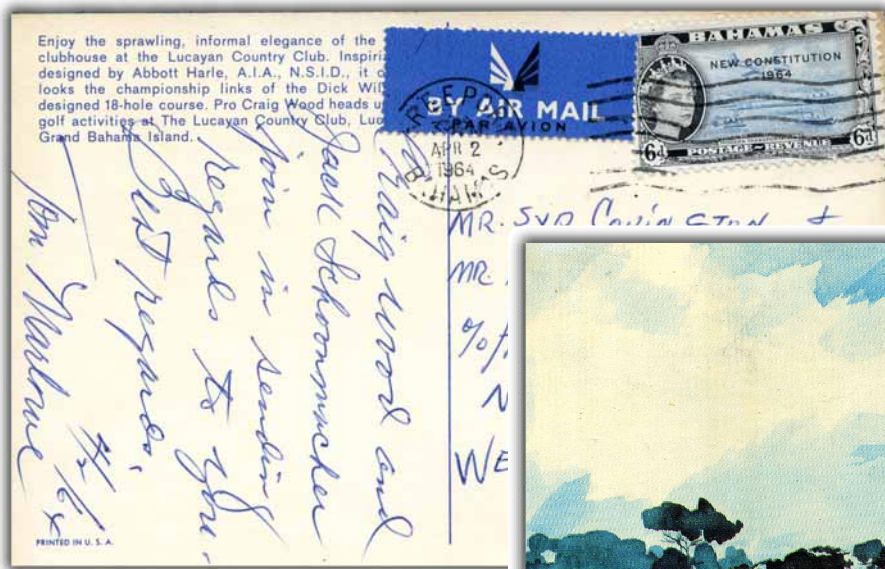 Enjoy the sprawling, informal elegance of the
clubhouse at the Lucayan Country Club. Inspiri
designed by Abbott Harle, A.I.A., N.S.I.D., it o
looks the championship links of the Dick Wil
designed 18-hole course. Pro Craig Wood heads u
golf activities at The Lucayan Country Club, Luc
Grand Bahama Island.
BY AIR MAIL
PAR AVION
FREEPO
APR 2
1964
BAHAMAS
BAHAMAS
NEW CONSTITUTION
1964
6d
POSTAGE REVENUE
6d
Craig Wood and
Jack Schoonmacher
join in sending
regards to you.
Best regards,
Tom Marlowe
MR. SYD COVINGTON &
MR.
N
WE
PRINTED IN U. S. A.